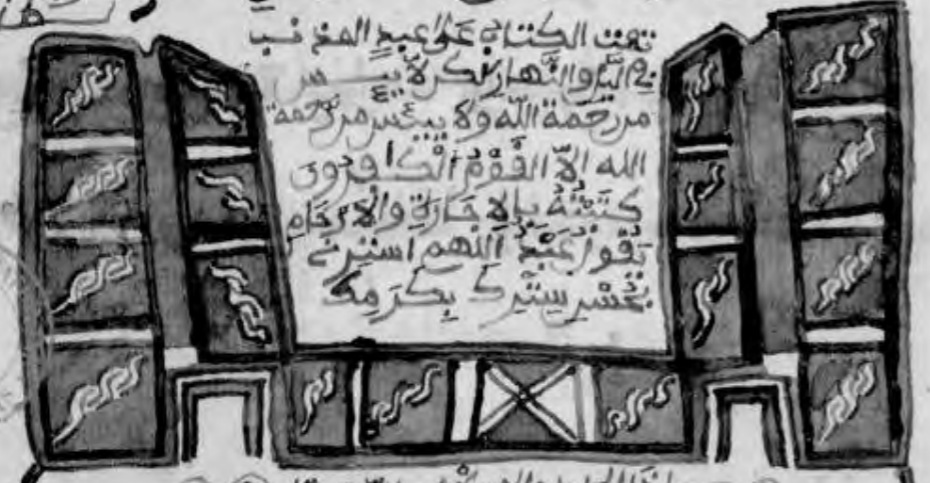 تمت الكتاب على عبد المذنب
في اليل والنهار لكن لا ييس
من رحمة الله ولا ييئس من رحمة
الله الا القوم الكافرون
كتبته بالاجارة والارحام
يقول عبد اللهم استرني
بحسن سترك بكرمك